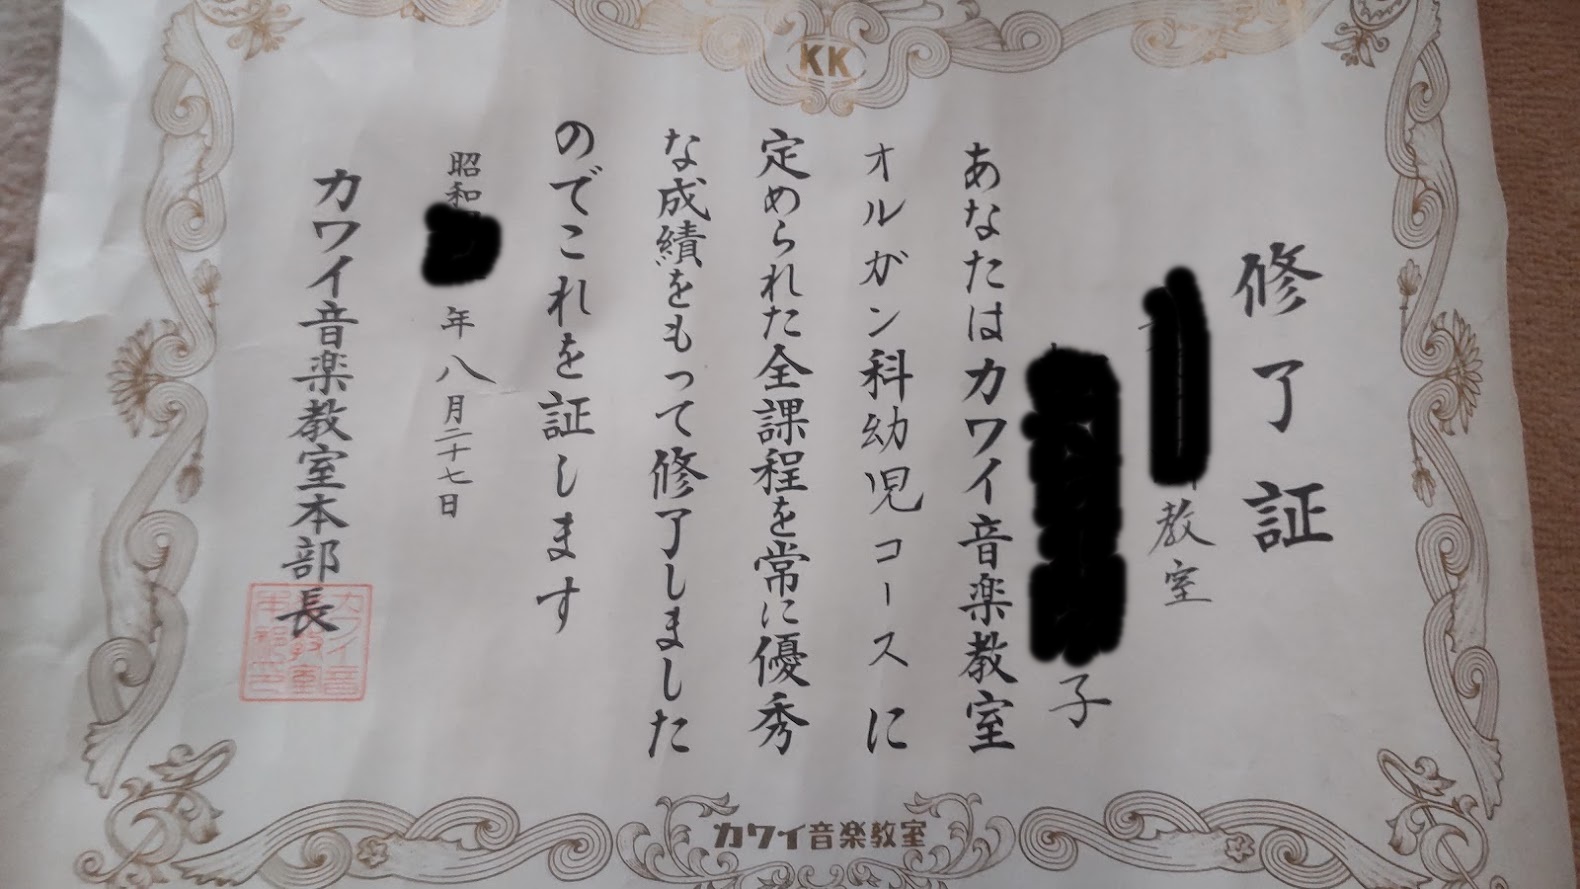 KK
修了証
教室
子
あなたはカワイ音楽教室
オルガン科幼児コースに
定められた全課程を常に優秀
な成績をもって修了しました
のでこれを証します
昭和 年八月二十七日
カワイ音楽教室本部長
カワイ音
楽教室
本部印
カワイ音楽教室